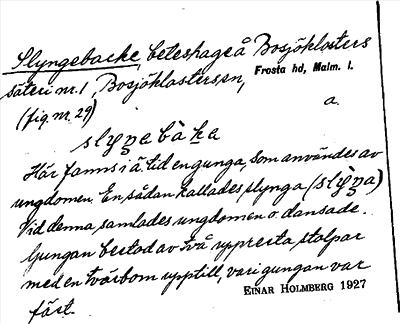 Slyngebacke, beteshage å Bosjöklosters
säteri nr. 1, Bosjöklosters sn, Frosta hd, Malm. l.
(fig. nr. 29) a.
Här fanns i ä. tid en gunga, som användes av
ungdomen. En sådan kallades slynga
Vid denna samlades ungdomen o. dansade.
Gungan bestod av två uppresta stolpar
med en tvärbom upptill, vari gungan var
fäst.
EINAR HOLMBERG 1927